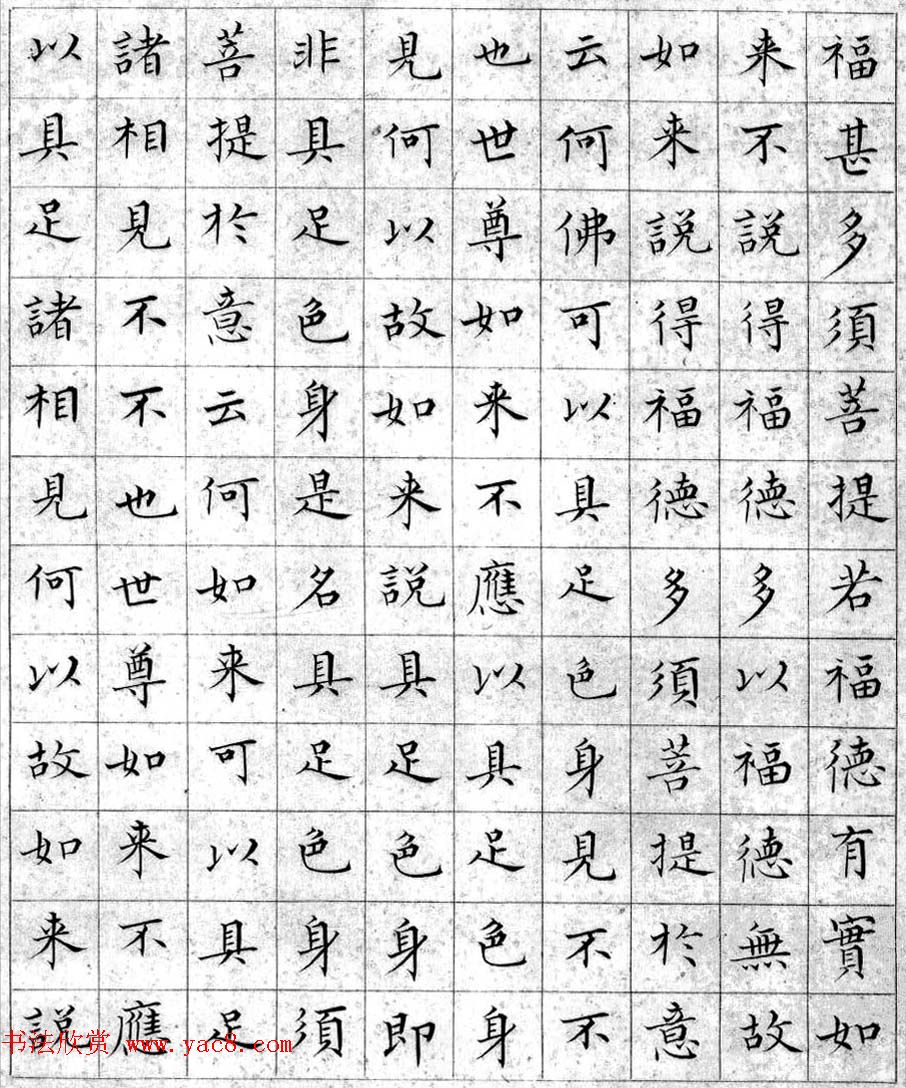 福甚多須菩提若福德有實如
来不說得福德多以福德無故
如来說得福德多須菩提於意
云何佛可以具足色身見不不
也世尊如来不應以具足色身
見何以故如来說具足色身即
非具足色身是名具足色身須
菩提於意云何如来可以具足
諸相見不不也世尊如来不應
以具足諸相見何以故如来說
书法欣赏 www.yac8.com